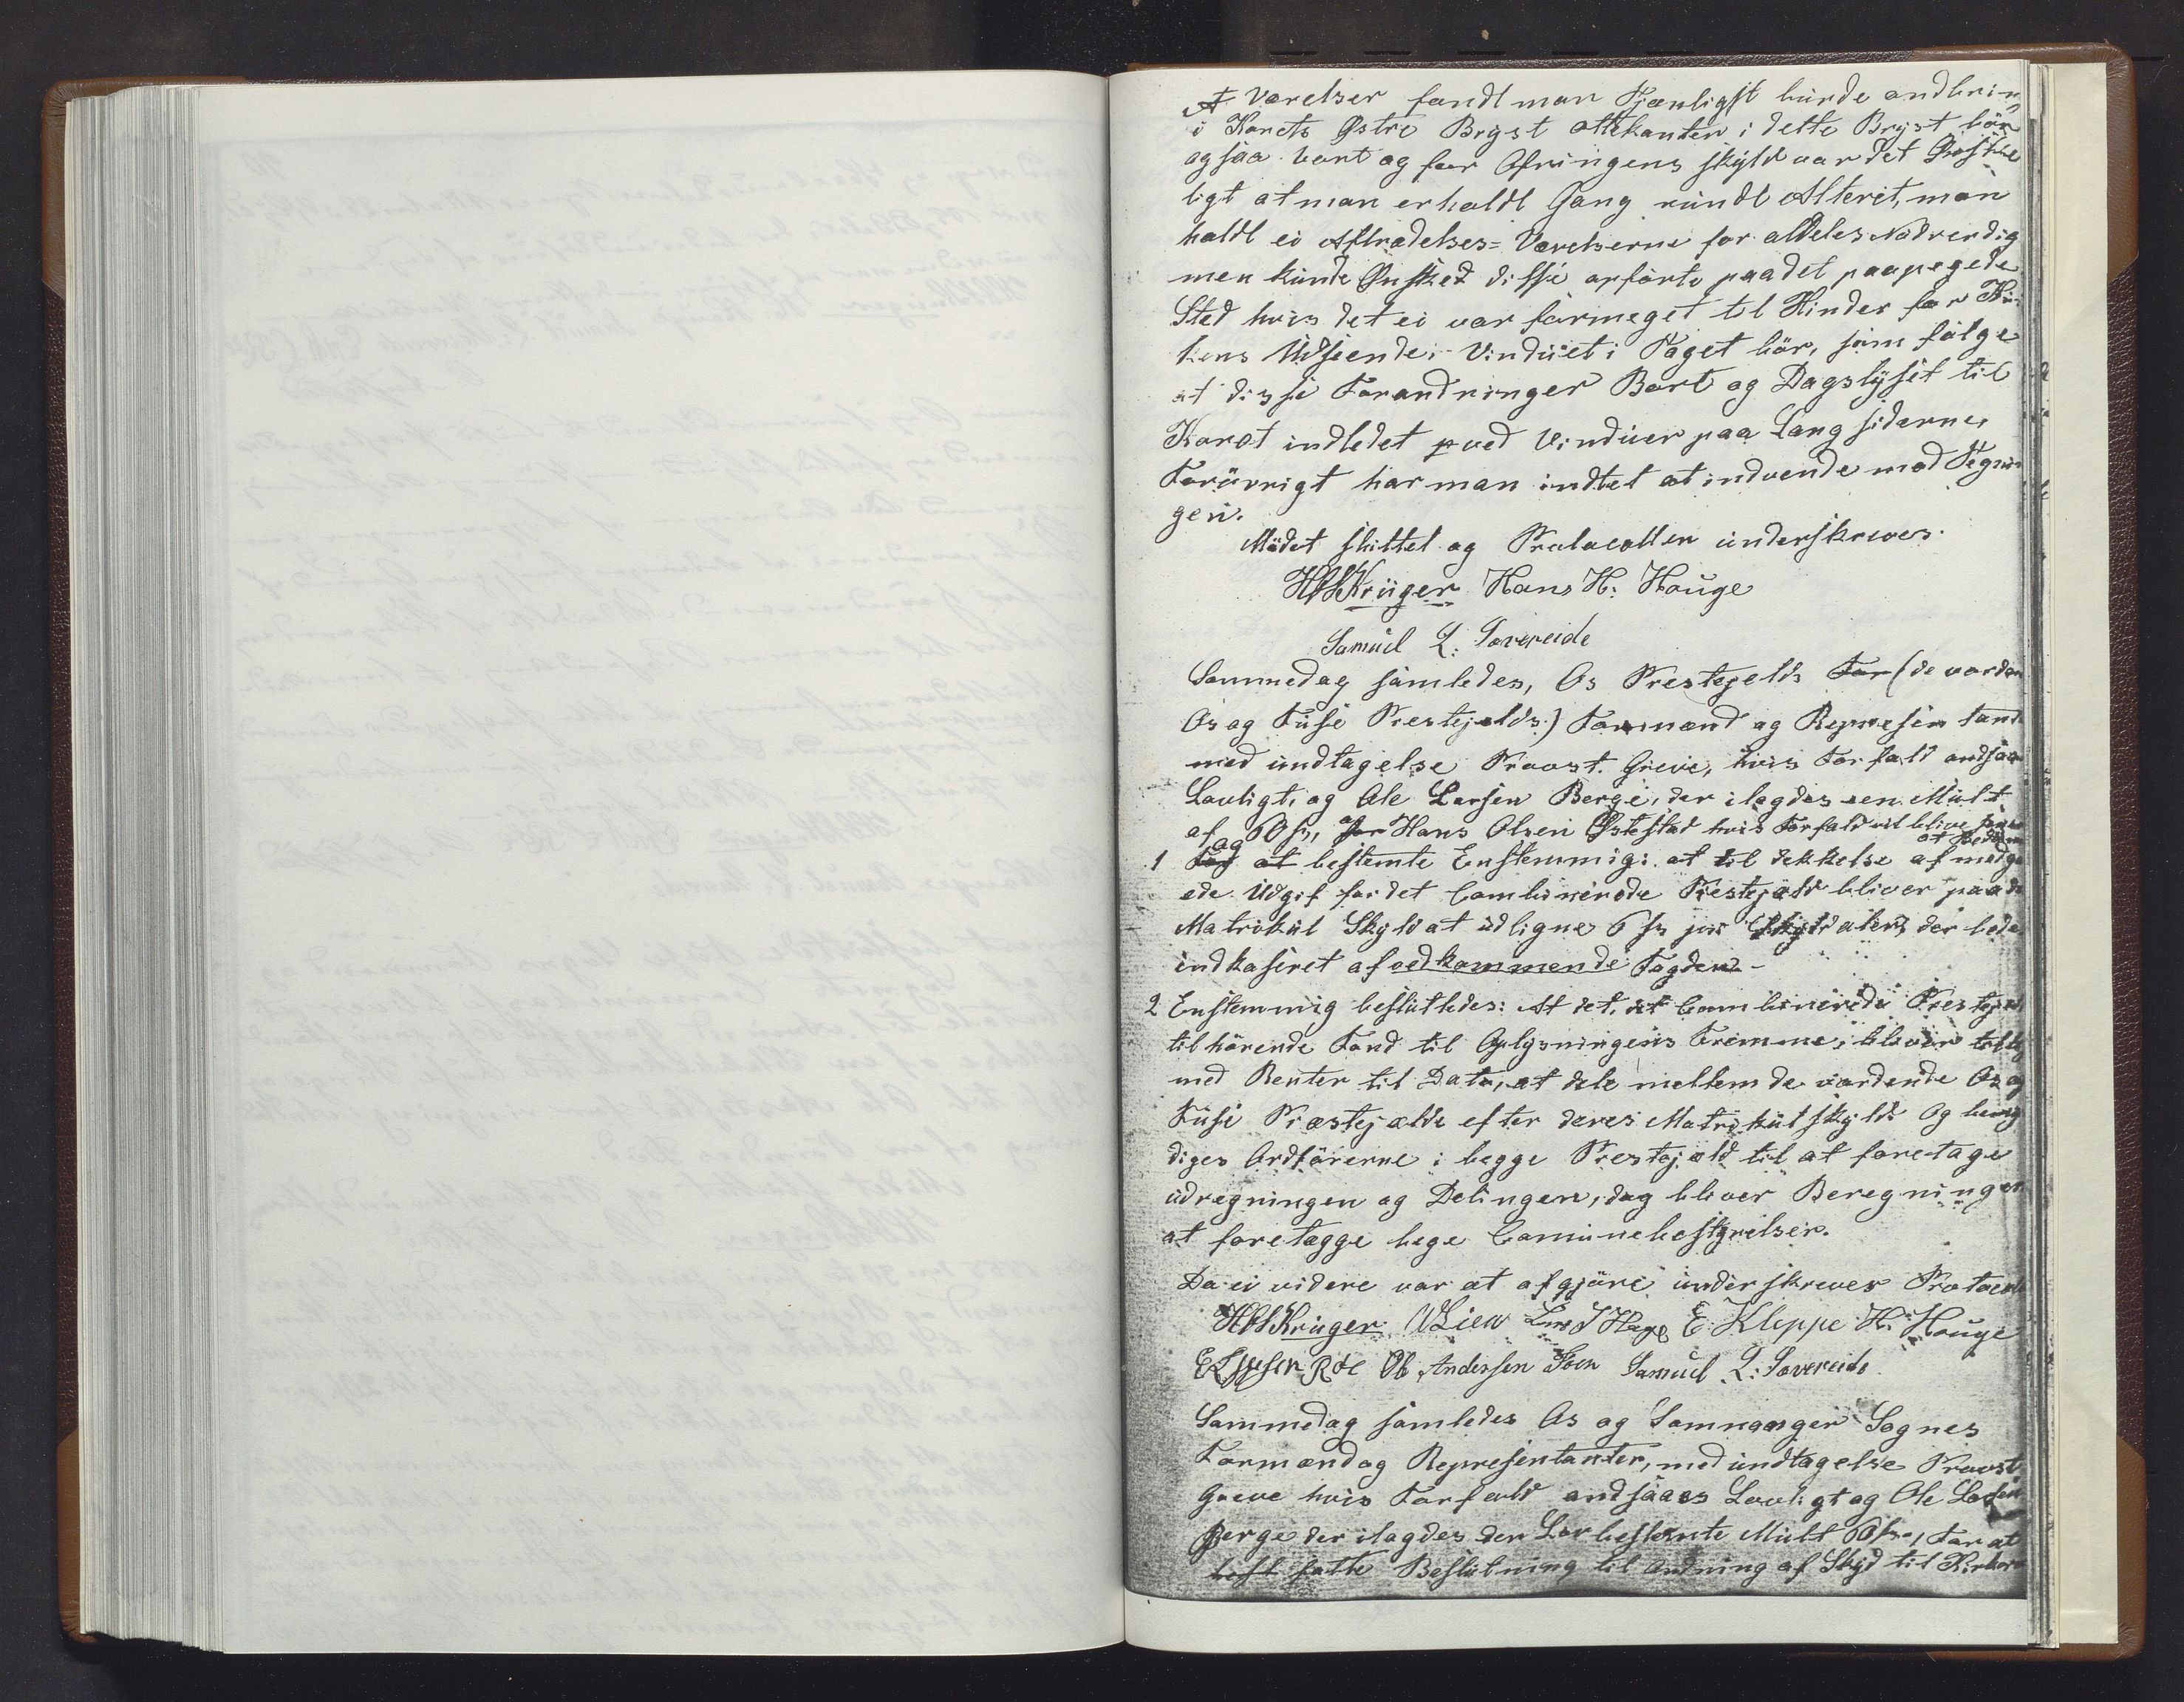 Værelser fandt man Tjenligst burde andbrin
i Korets Østre Bryst ottekanten i dette Bryst bör
ogsaa bort og for Ofringens skyld var det Önske
ligt at man erholdt Gang rundt Alteret, man
holdt ei Aftrædelses= Værelserne for aldeles Nödvendig
men kunde Önsked disse opförte paa det paapegede
Sted hvis det ei var formeget til Hinder for Kir
kens Udseende. Vinduet i Taget bör, som fölge
at disse Forandringer Bort og Dagslÿset til
Koret indledet ved Vinduer paa Langsiderne,
Forövrigt har man indtet at indvende mod Tegnin
gen.
Mödet sluttet og Protocollen underskreves.
HMKrüger Hans H: Hauge
Samuel L: Sövereide
Sammedag samledes, Os Prestegjelds For (de vorden
Os og Fuse Prestejelds.) Formænd og Representant
med undtagelse Provst. Greve, hvis Forfald andsaaes
Lovligt, og Ole Larsen Berge, der ilagdes en Mült
af 60 s, og Hans Olsen Østestad hvis Forfald vil blive
at
1 og at bestemte Enstemmig: at til dekkelse af medg
ede Udgif for det Combinerede Prestejæld bliver paa d
Matrikul Skyld at udligne 6 s pr Skylddaler, der bede
indkaseret af vedkommende Fogder. -
2 Enstemmig besluttedes: At det, det Combinerede Prestej
tilhörende Fond til Oplysningens Fremme, bliver
med Renter til Dato, at dele mellem de vordende Os og
Fuse Præstejælde efter deres Matrikülskyld og bemyn
diges Ordförerne i begge Prestejæld til at foretage
udregningen og Delingen, dog bliver Beregningen
at foretægge bege Comünebestyrelser.
Da ei videre var at afgjöre underskreves Protocol
HMKrüger NLien Lars J Hage E Kleppe H: Hauge
Ol Andersen Samuel L: Sövereide
Sammedag samledes Os og Samnanger Sognes
Formænd og Representanter, med undtagelse Provst
Greve hvis Forfald andsaaes Lovligt og Ole Larsen
Berge der ilagdes den Lovbestemte Mült 60 s, For at
best fatte Beslutning til andning af Skyd til Kirken